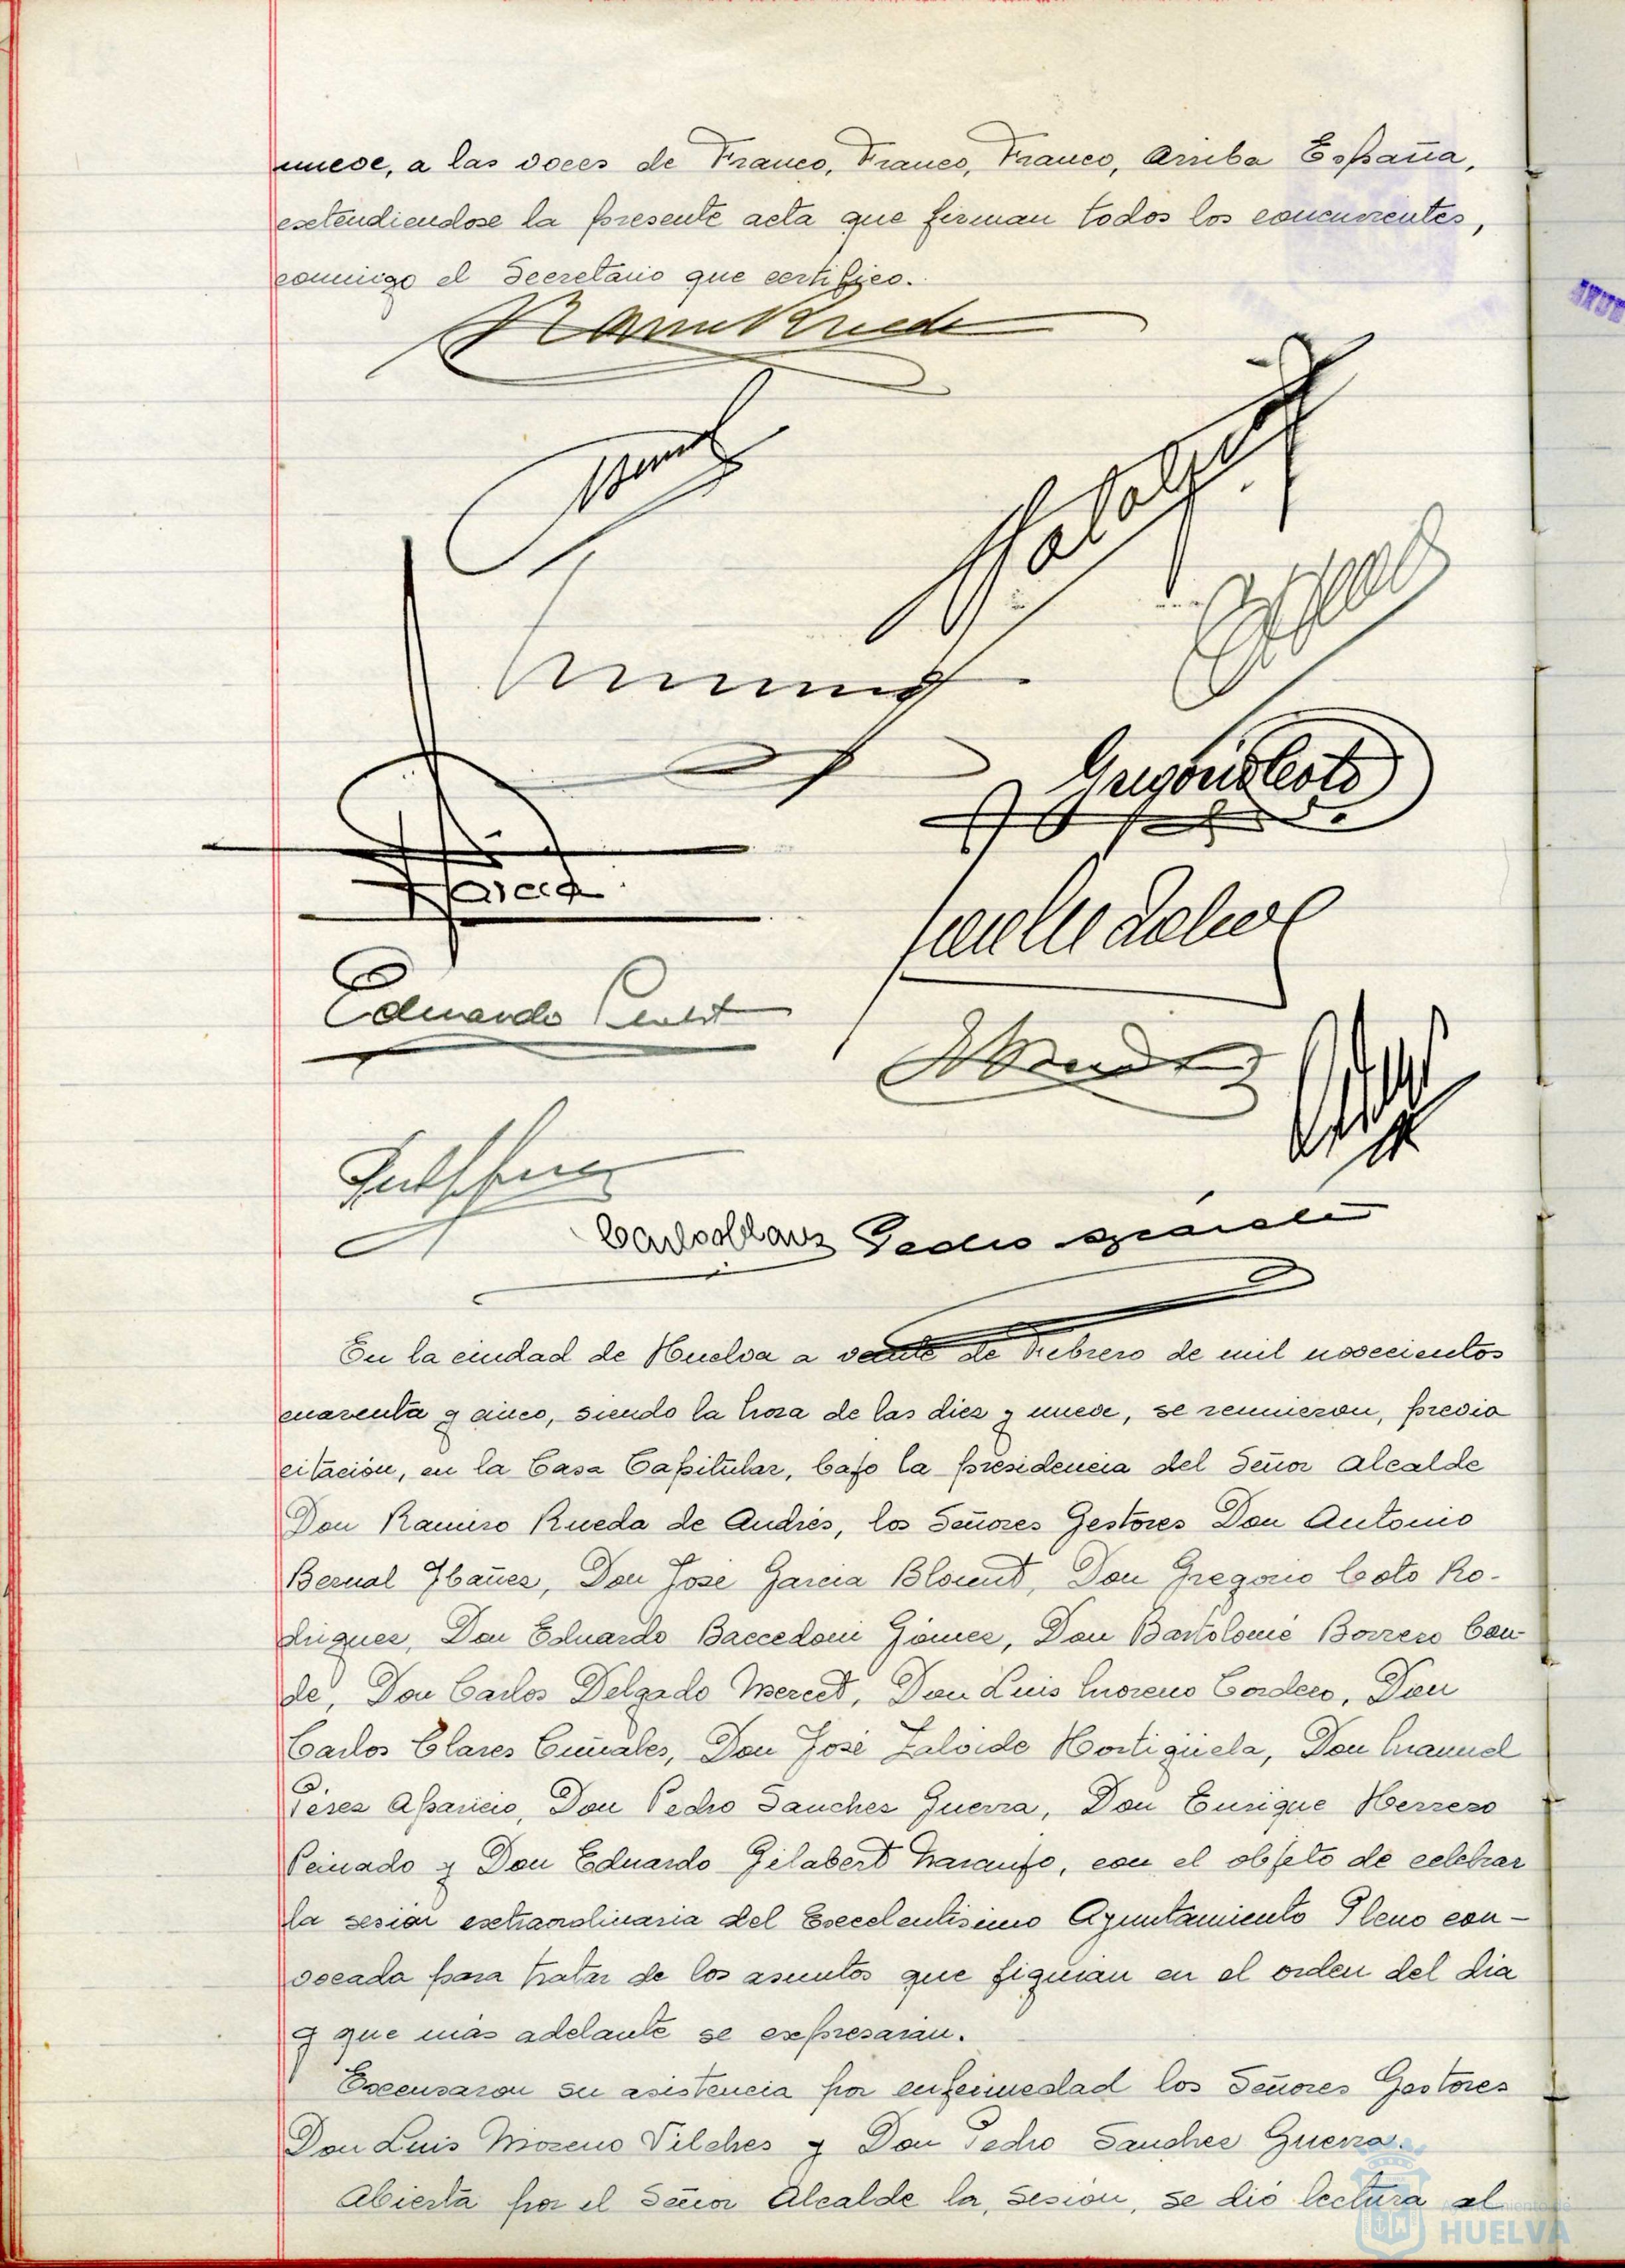 nueve, a las voces de Franco, Franco, Franco, Arriba España,
extendiendose la presente acta que firman todos los concurrentes,
conmigo el Secretario que certifico.
Gregorio Coto
Garcia
Eduardo
Carlos Clares Pedro
En la ciudad de Huelva a veinte de Febrero de mil novecientos
cuarenta y cinco, siendo la hora de las diez y nueve, se reunieron, previa
citación, en la Casa Capitular, bajo la presidencia del Señor Alcalde
Don Ramiro Rueda de Andrés, los Señores Gestores Don Antonio
Bernal Ibañez, Don José Garcia Blount, Don Gregorio Coto Ro-
driguez, Don Eduardo Baccedoni Gómez, Don Bartolomé Borrero Con-
de, Don Carlos Delgado Mercet, Don Luis Moreno Cordero, Don
Carlos Clares Cumales, Don José Zalvide Hortigüela, Don Manuel
Pérez Aparicio, Don Pedro Sanchez Guerra, Don Enrique Herrero
Peinado y Don Eduardo Gilabert Naranjo, con el objeto de celebrar
la sesion extraordinaria del Excelentisimo Ayuntamiento Pleno con-
vocada para tratar de los asuntos que figuran en el orden del dia
y que más adelante se expresarán.
Excusaron su asistencia por enfermedad los Señores Gestores
Don Luis Moreno Vilches y Don Pedro Sanchez Guerra.
Abierta por el Señor Alcalde la, Sesión, se dió lectura al
Ayuntamiento de
HUELVA